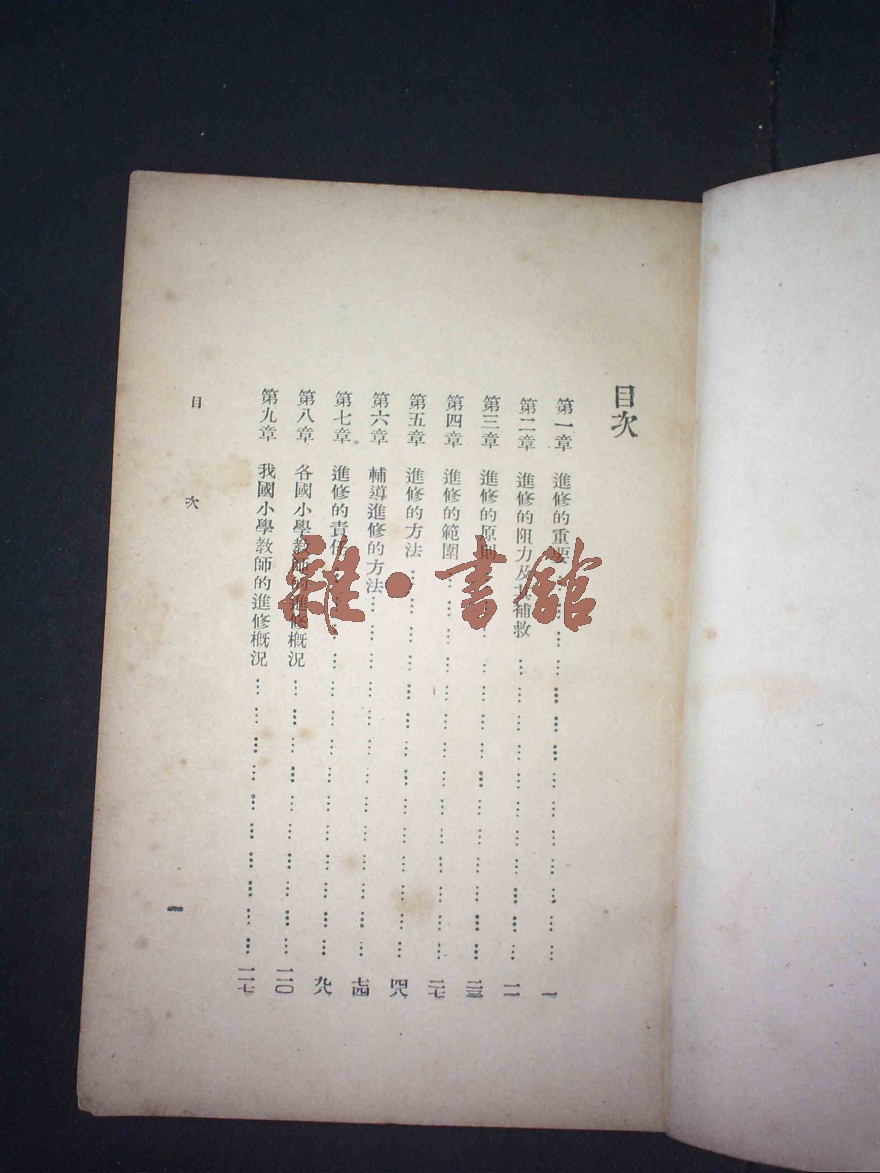 目次
第一章 進修的重要……一
第二章 進修的阻力及其補救……一一
第三章 進修的原則……二三
第四章 進修的範圍……二七
第五章 進修的方法……四八
第六章 輔導進修的方法……七四
第七章 進修的責任……九八
第八章 各國小學教師的進修概況……一一〇
第九章 我國小學教師的進修概況……一一七
目 次
一
雜·書館